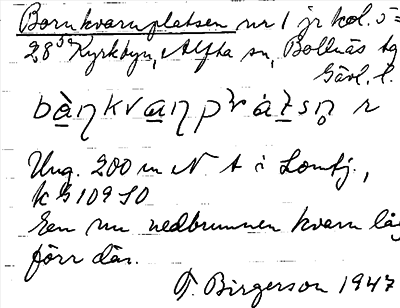 Bornkvarnplatsen nr 1 jr kol. 5=
28 Kyrkbyn, Alfta sn, Bollnäs tg
Gävl. l.
Ung. 200 m N t i Lomtj.,
k G 109 SO
En nu nedbrunnen kvarn låg
förr där.
T. Birgerson 1947